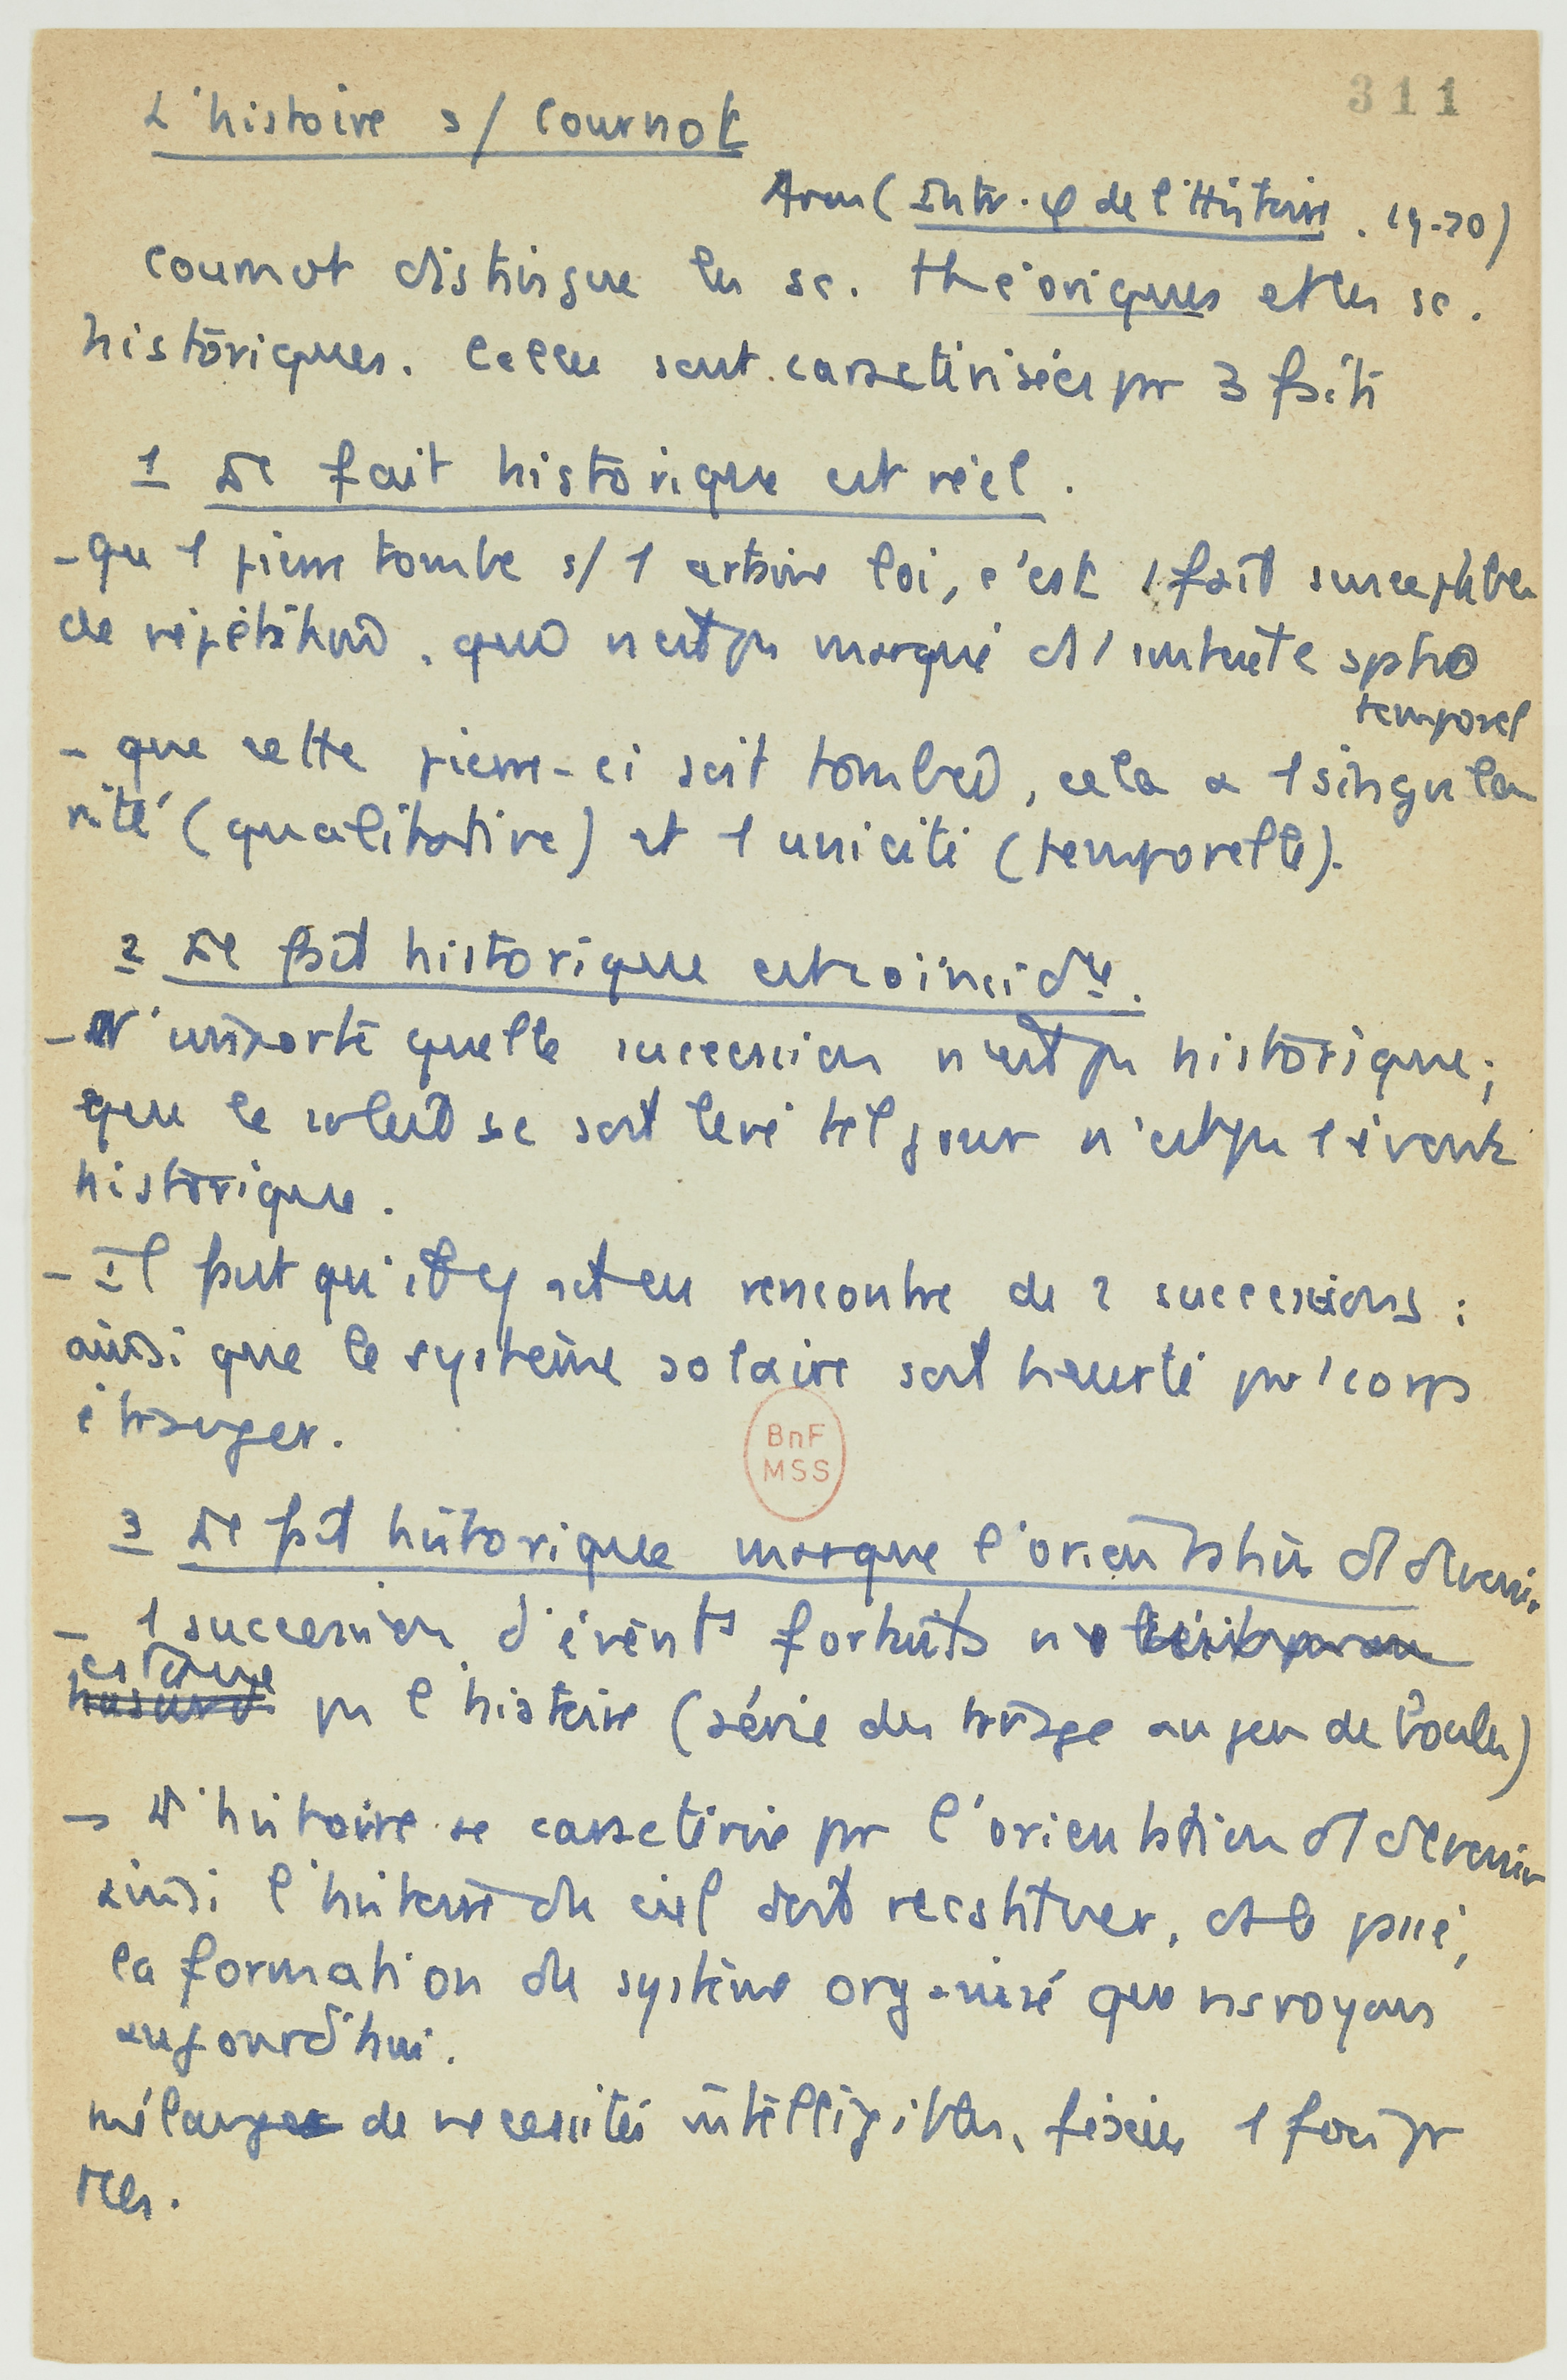 311
L'histoire s/ Cournot
Aron (Intr. φ de l'Histoire. 19-20)
Cournot distingue les sc. théoriques et les sc.
historiques. Celles sont caractérisées pr 3 faits
1 Le fait historique est réel.
- que 1 pierre tombe s/ 1 certaine loi, c'est 1 fait susceptible
de répétition, que n'est pas marqué d'1 spatio
temporel
- que cette pierre-ci soit tombée, cela a 1 singula
rité (qualitative) et 1 unicité (temporelle).
2 Le fait historique est coïncidce.
- N'importe quelle succession n'est pas historique;
que le soleil se soit levé tel jour n'est pas 1 évent
historique.
- Il faut qu'il y ait eu rencontre de 2 successions :
ainsi que le système solaire soit heurté par 1 corps
étranger.
BnF
MSS
3 Le fait historique marque l'orientation d'1 devenir
- 1 succession d'évènts fortuits ne
constitue pas l'histoire (série des tirage au jeu de boules)
→ L'histoire se caractérise par l'orientation d'1 devenir
ainsi l'histoire du ciel doit reconstituer, ds le passé,
la formation du système organisé que ns voyons
aujourd'hui.
mélange de nécessités intelligibles, fixées 1 fois pr
ttes.